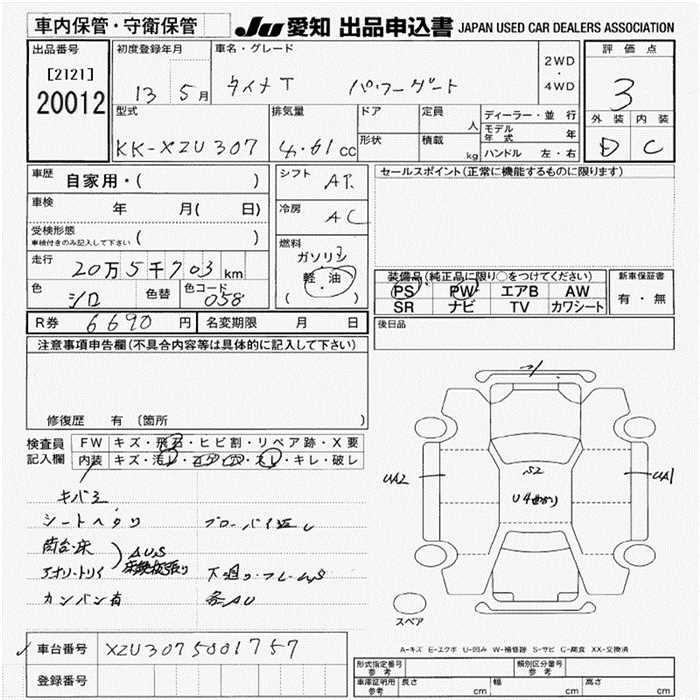 車内保管・守衛保管 JU 愛知 出品申込書 JAPAN USED CAR DEALERS ASSOCIATION
出品番号 初度登録年月 車名・グレード 2WD・4WD 評価点
[2121]
20012 13 5月 ダイナT パワーゲート 3
型式 排気量 ドア 定員 人 ディーラー・並行 外装 内装
KK-XZU307 4.61cc 形状 積載 kg モデル年式 年 D C
ハンドル 左・右
車歴 自家用・( ) シフト AT セールスポイント(正常に機能するものに限ります)
車検 年 月( 日) 冷房 AC
受検形態 車検付きのみ記入して下さい ( )
燃料 ガソリン
走行 20万5千703km 軽・油 ( )
装備品(純正品に限り○をつけてください) 新車保証書
色 シロ 色替 色コード 058 PS PW エアB AW 有・無
SR ナビ TV カワシート
R券 6690円 名変期限 月 日 後日品
注意事項申告欄(不具合内容等は具体的に記入して下さい)
修復歴 有 (箇所 )
検査員記入欄 FW キズ・飛石・ヒビ割・リペア跡・X要
内装 キズ・汚レ・コゲ・穴・スレ・キレ・破レ
UA2 S2 UA1
シートヘタリ
荷台・床 AUS
アオリ・トリイ
カンバン有 各AU
スペア
車台番号 XZU3075001757
登録番号
A-キズ E-エクボ U-凹み W-補修跡 S-サビ C-腐食 XX-交換済
形式指定番号 参考 類別区分番号 参考
車庫証明用 参考 長さ cm 幅 cm 高さ cm